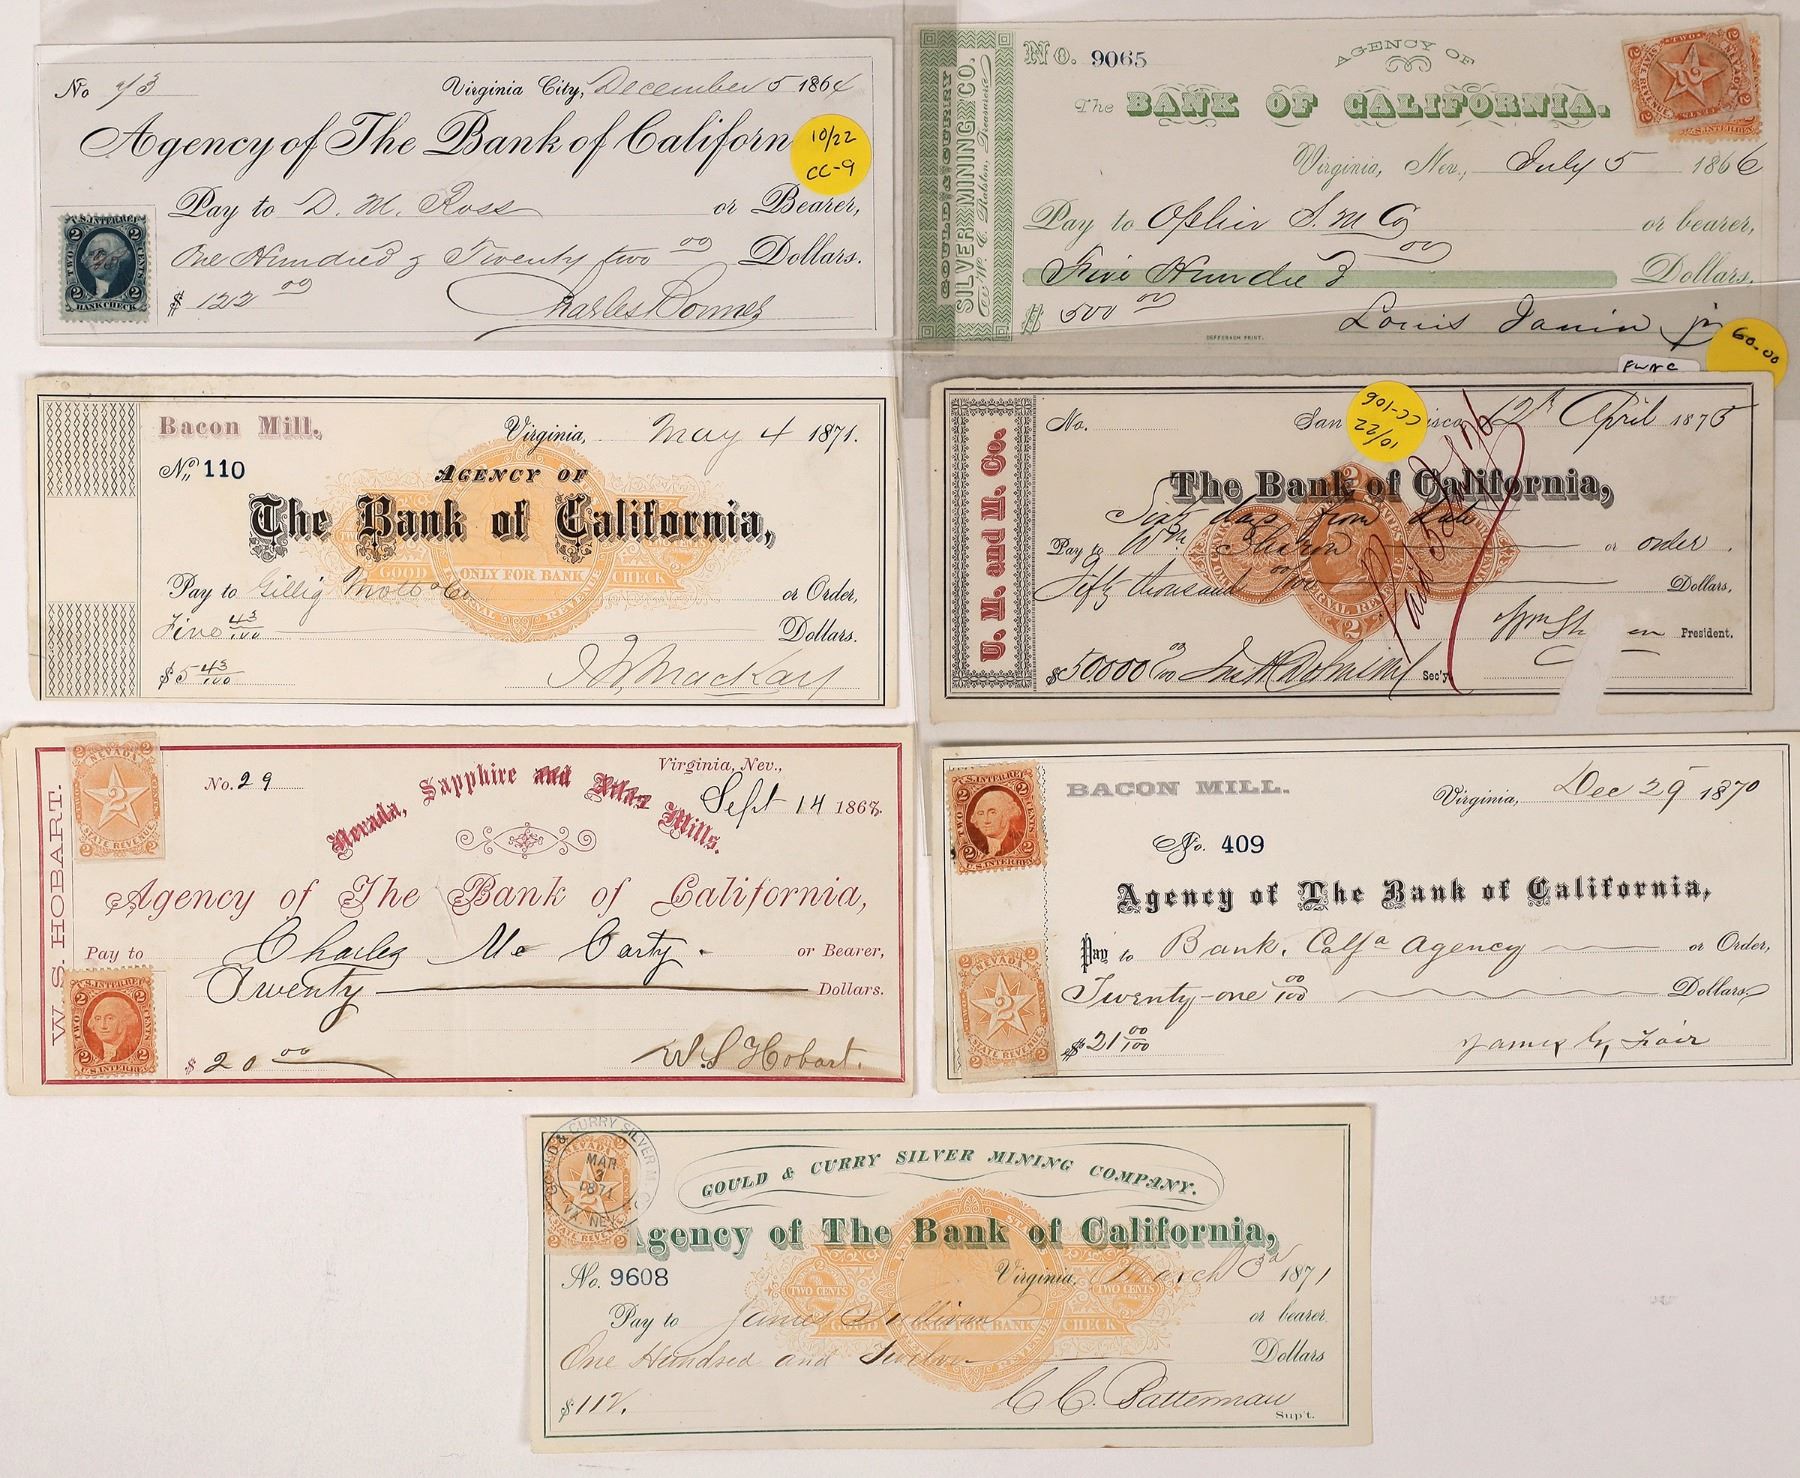 Virginia City, December 5 1864
Agency of The Bank of Californ
10/22
CC-9
Pay to D. M. Ross or Bearer,
One Hundred & Twenty two 00 Dollars.
$ 122 00
Charles Bonner
U.S. INTER. REV.
2 2
TWO CENTS
2 2
BANK CHECK
GOULD & CURRY
SILVER MINING CO.
W. C. Ralston, Treasurer
No. 9065
AGENCY OF
The BANK OF CALIFORNIA.
Virginia, Nev., July 5 1866
Pay to Ophir S. M Co or bearer,
Five Hundred 00 Dollars.
$ 500 00
Louis Janin jr
DEFFEBACH PRINT.
TWO
NEVADA
STATE REVENUE
U.S. INTER. REV.
60.00
Bacon Mill.
Virginia, May 4 1871.
No. 110
AGENCY OF
The Bank of California,
GOOD ONLY FOR BANK CHECK
Pay to Gillig Mott & Co or Order,
Five 43/100 Dollars.
$5 43/100
J W Mackay
U. M. and M. Co.
No.
San isco 12th April 1875
10/22
CC-106
The Bank of California,
Sixty days from date
Pay to Wm Sharon or order.
Fifty thousand 00/100 Dollars,
Paid
Wm Sh en President.
$50.000 00/100
Sec'y
W. S. HOBART.
NEVADA
2
STATE REVENUE
No. 29
Virginia, Nev.,
Sept 14 186
Nevada, Sapphire and Atlas Mills.
Agency of The Bank of California,
Pay to Charles Mc Carty. or Bearer,
Twenty Dollars.
$ 20 00
W. S Hobart.
U.S. INTER. REV.
TWO CENTS
U.S. INTER. REV.
U.S. INTER. REV.
TWO CENTS
U.S. INTER. REV.
BACON MILL.
Virginia, Dec 29 1870
No. 409
Agency of The Bank of California,
Pay to Bank. Calfa Agency or Order,
Twenty-one 00/100 Dollars
$21 00/100
James G. Fair
NEVADA
2
STATE REVENUE
GOULD & CURRY SILVER M. CO.
MAR
3
1871
VA. NEV.
NEVADA
2
STATE REVENUE
GOULD & CURRY SILVER MINING COMPANY.
Agency of The Bank of California,
No. 9608
Virginia, March 3d 1871
TWO CENTS
TWO CENTS
Pay to James Sullivan or bearer
GOOD ONLY FOR BANK CHECK
One Hundred and Twelve Dollars
$112.
C. C. Batterman
Sup't.